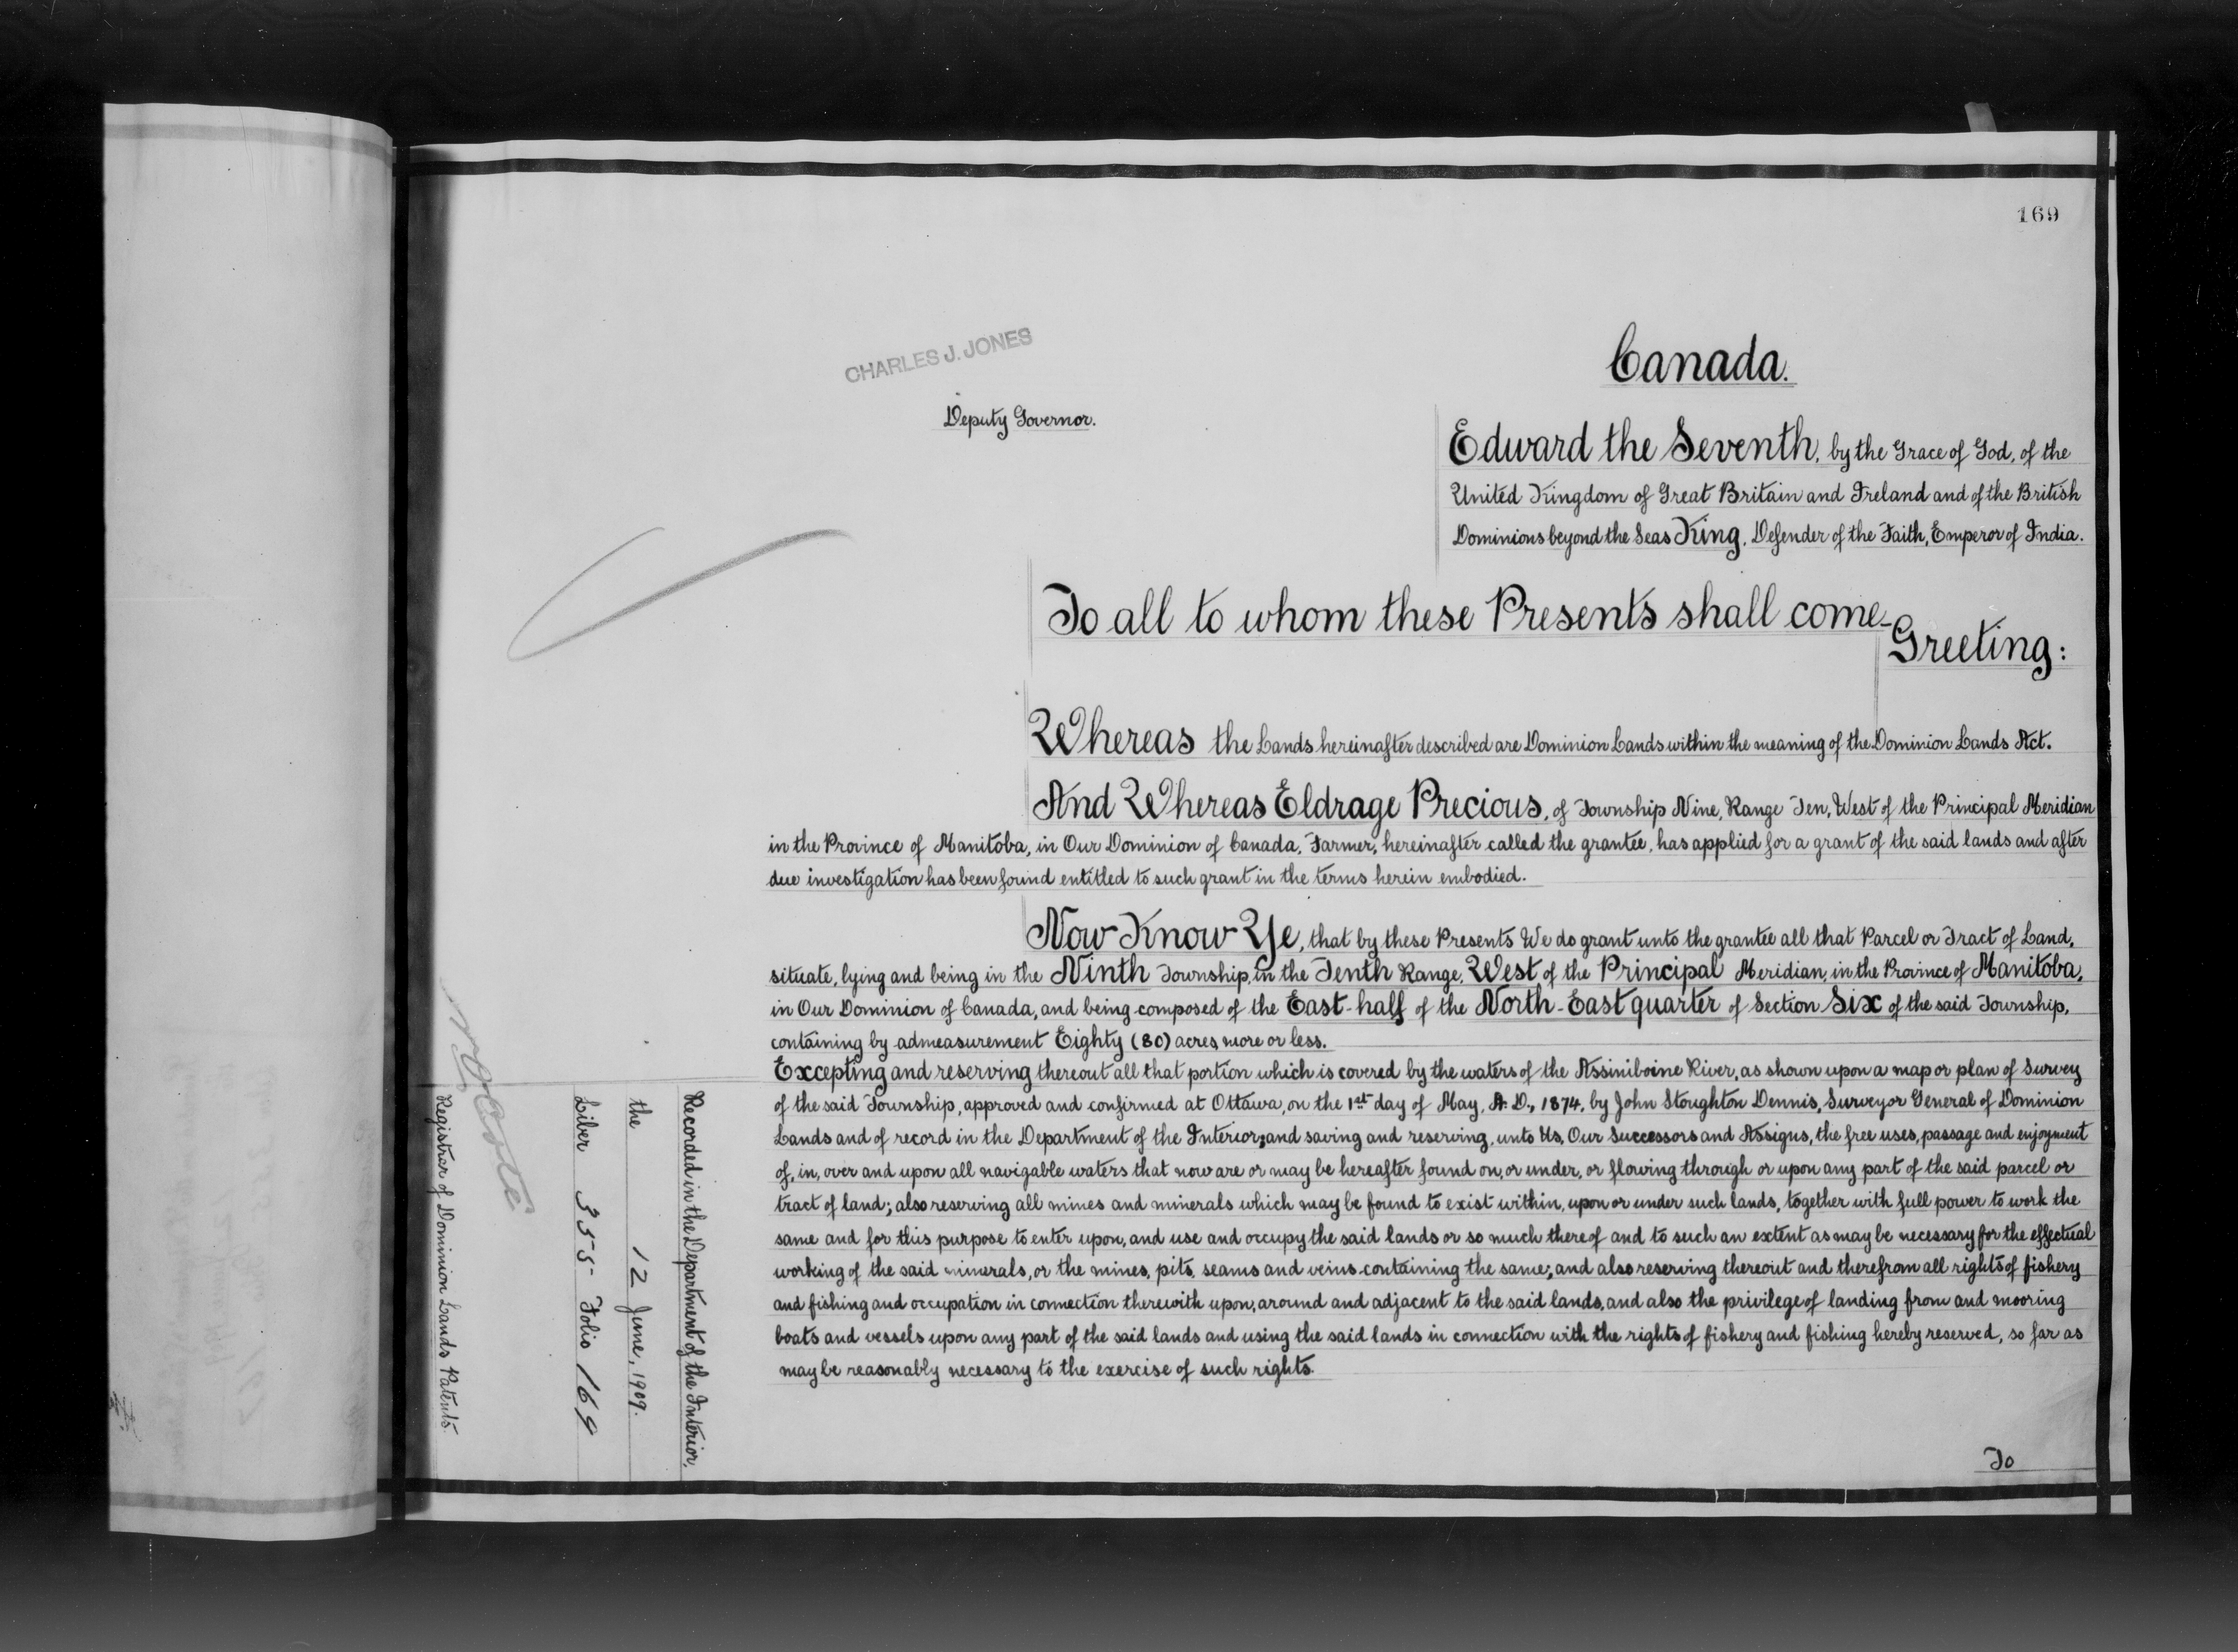 169
CHARLES J. JONES
Deputy Governor.
Canada.
Edward the Seventh, by the Grace of God, of the
United Kingdom of Great Britain and Ireland and of the British
Dominions beyond the Seas King, Defender of the Faith, Emperor of India.
To all to whom these Presents shall come-
Greeting:
Whereas the Lands hereinafter described are Dominion Lands within the meaning of the Dominion Lands Act.
And Whereas Eldrage Precious, of Township Nine, Range Ten, West of the Principal Meridian
in the Province of Manitoba, in Our Dominion of Canada, Farmer, hereinafter called the grantee, has applied for a grant of the said lands and after
due investigation has been found entitled to such grant in the terms herein embodied.
Now Know Ye, that by these Presents We do grant unto the grantee all that Parcel or Tract of Land,
situate, lying and being in the Ninth Township, in the Tenth Range, West of the Principal Meridian, in the Province of Manitoba,
in Our Dominion of Canada, and being composed of the East-half of the North-East quarter of Section Six of the said Township,
containing by admeasurement Eighty (80) acres, more or less.
Excepting and reserving thereout all that portion which is covered by the waters of the Assiniboine River, as shown upon a map or plan of Survey
of the said Township, approved and confirmed at Ottawa, on the 1st day of May, A. D., 1874, by John Stoughton Dennis, Surveyor General of Dominion
Lands and of record in the Department of the Interior; and saving and reserving, unto Us, Our Successors and Assigns, the free uses, passage and enjoyment
of, in, over and upon all navigable waters that now are or may be hereafter found on, or under, or flowing through or upon any part of the said parcel or
tract of land; also reserving all mines and minerals which may be found to exist within, upon or under such lands, together with full power to work the
same and for this purpose to enter upon, and use and occupy the said lands or so much thereof and to such an extent as may be necessary for the effectual
working of the said minerals, or the mines, pits, seams and veins containing the same; and also reserving thereout and therefrom all rights of fishery
and fishing and occupation in connection therewith upon, around and adjacent to the said lands, and also the privilege of landing from and mooring
boats and vessels upon any part of the said lands and using the said lands in connection with the rights of fishery and fishing hereby reserved, so far as
may be reasonably necessary to the exercise of such rights.
To
Recorded in the Department of the Interior,
the 12 June, 1909.
Liber 355 Folio 169
Registrar of Dominion Lands Patents.